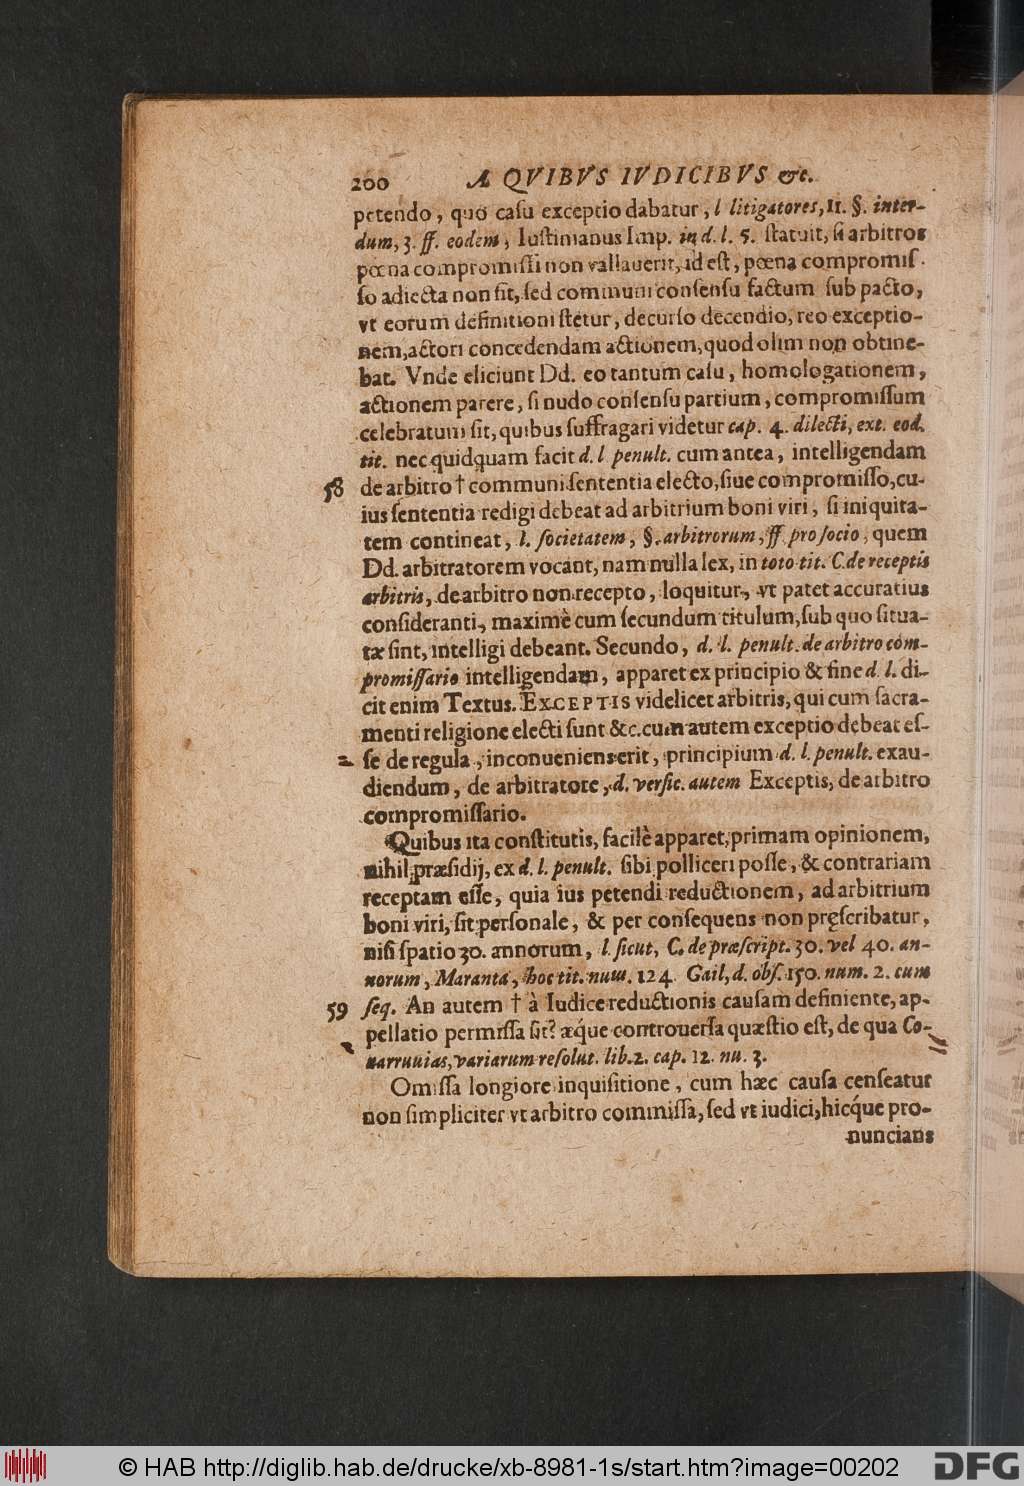 200 A QVIBVS IVDICIBVS &c.
petendo, quo casu exceptio dabatur, l litigatores, 11. §. inter-
dum, 3. ff. eodem, Iustinianus Imp. in d. l. 5. statuit, si arbitros
pœna compromissi non vallauerit, id est, pœna compromis-
so adiecta non sit, sed communi consensu factum sub pacto,
vt eorum definitioni stetur, decurso decendio, reo exceptio-
nem, actori concedendam actionem, quod olim non obtine-
bat. Vnde eliciunt Dd. eo tantum casu, homologationem,
actionem parere, si nudo consensu partium, compromissum
celebratum sit, quibus suffragari videtur cap. 4. dilecti, ext. eod.
tit. nec quidquam facit d. l penult. cum antea, intelligendam
58 de arbitro † communi sententia electo, siue compromisso, cu-
ius sententia redigi debeat ad arbitrium boni viri, si iniquita-
tem contineat, l. societatem, §. arbitrorum, ff pro socio, quem
Dd. arbitratorem vocant, nam nulla lex, in toto tit. C. de receptis
arbitris, de arbitro non recepto, loquitur, vt patet accuratius
consideranti, maximè cum secundum titulum, sub quo situa-
tæ sint, intelligi debeant. Secundo, d. l. penult. de arbitro com-
promissario intelligendam, apparet ex principio & fine d. l. di-
cit enim Textus. EXCEPTIS videlicet arbitris, qui cum sacra-
menti religione electi sunt &c. cum autem exceptio debeat es-
se de regula, inconueniens erit, principium d. l. penult. exau-
diendum, de arbitratore, d. versic. autem Exceptis, de arbitro
compromissario.
Quibus ita constitutis, facilè apparet, primam opinionem,
nihil præsidij, ex d. l. penult. sibi polliceri posse, & contrariam
receptam esse, quia ius petendi reductionem, ad arbitrium
boni viri, sit personale, & per consequens non pręscribatur,
nisi spatio 30. annorum, l. sicut, C. de præscript. 30. vel 40. an-
norum, Maranta, hoc tit. num. 124. Gail, d. obs. 150. num. 2. cum
59 seq. An autem † à Iudice reductionis causam definiente, ap-
pellatio permissa sit? æque controuersa quæstio est, de qua Co-
uarruuias, variarum resolut. lib. 2. cap. 12. nu. 3.
Omissa longiore inquisitione, cum hæc causa censeatur
non simpliciter vt arbitro commissa, sed vt iudici, hicque pro-
nuncians
© HAB http://diglib.hab.de/drucke/xb-8981-1s/start.htm?image=00202
DFG